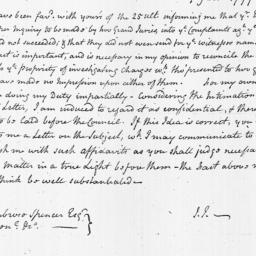 ave been fav.d with yours of the 25 ult informing me that y.e G
es Inquiry to be made by two grand Juries into y.e Complaints ag.t y.e
id not succeed; & that they did not even send for y.e witnesses name
act is important, and is necessary in my opinion to reconcile the
to y.e propriety of investigating charges wh. tho presented to two g
ave made no Impression upon either of them. For my own
my Duty impartially considering the Information
Letter, I am induced to regard it as confidential, & there
to be laid before the Council. If this Idea is correct, you
to me a Letter on the Subject, wh. I may communicate to
sh me with such affidavits as you shall judge necessa
matter in a true Light before them — the Fact above m
think be well substantiated —
mbrose Spencer Esq.r
on &c.
J.J. —